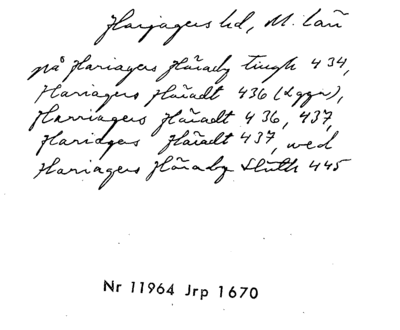 Harjagers hd, M. län
på Hariagers Häradz tingh 434,
Hariagers Häradt 436 (2 ggr),
Harriagers Häradt 436, 437,
Haridgers Häradt 437, wed
Hariagers Härady 445
Nr 11964 Jrp 1670